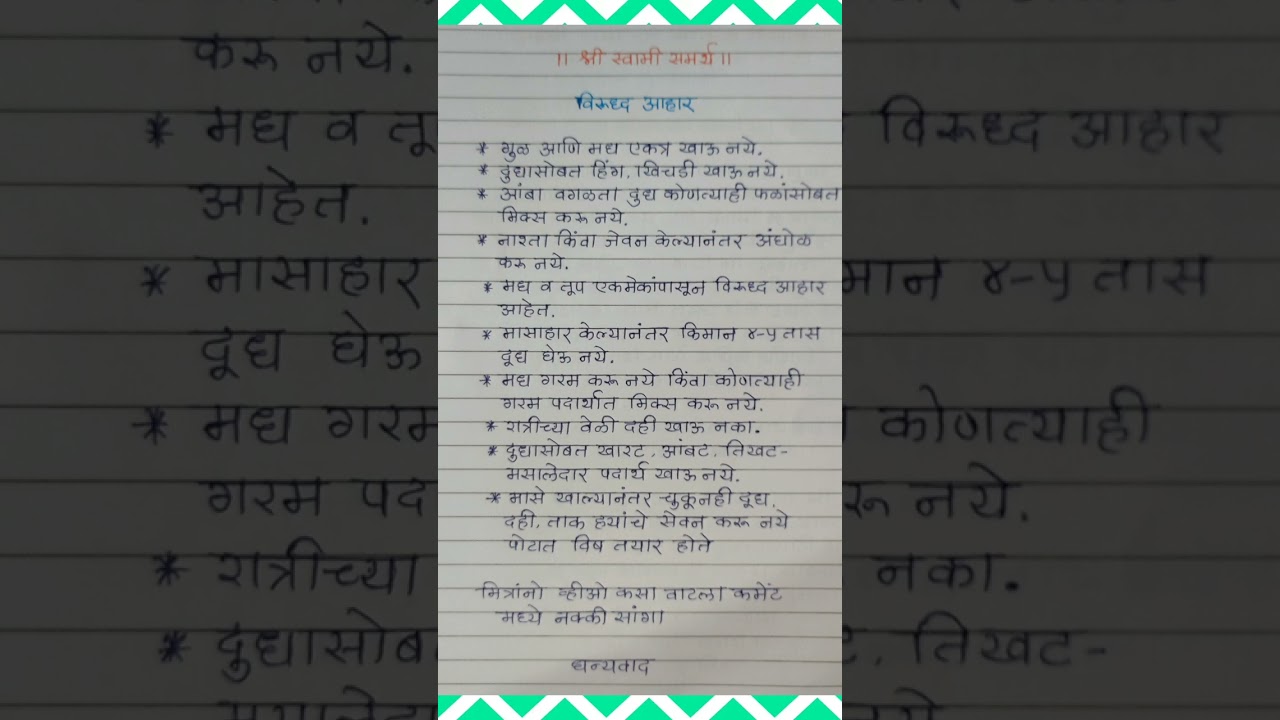 ॥ श्री स्वामी समर्थ ॥
विरूध्द आहार
* गुळ आणि मध एकत्र खाऊ नये.
* दुधासोबत हिंग, खिचडी खाऊ नये.
* आंबा वगळता दुध कोणत्याही फळांसोबत
मिक्स करू नये.
* नाश्ता किंवा जेवन केल्यानंतर अंघोळ
करू नये.
* मध व तूप एकमेकांपासून विरूध्द आहार
आहेत.
* मासाहार केल्यानंतर किमान ४-५ तास
दूध घेऊ नये.
* मध गरम करू नये किंवा कोणत्याही
गरम पदार्थात मिक्स करू नये.
* रात्रीच्या वेळी दही खाऊ नका.
* दुधासोबत खारट, आंबट, तिखट-
मसालेदार पदार्थ खाऊ नये.
* मासे खाल्यानंतर चुकूनही दूध,
दही, ताक ह्यांचे सेवन करू नये
पोटात विष तयार होते
मित्रांनो व्हीओ कसा वाटला कमेंट
मध्ये नक्की सांगा
धन्यवाद